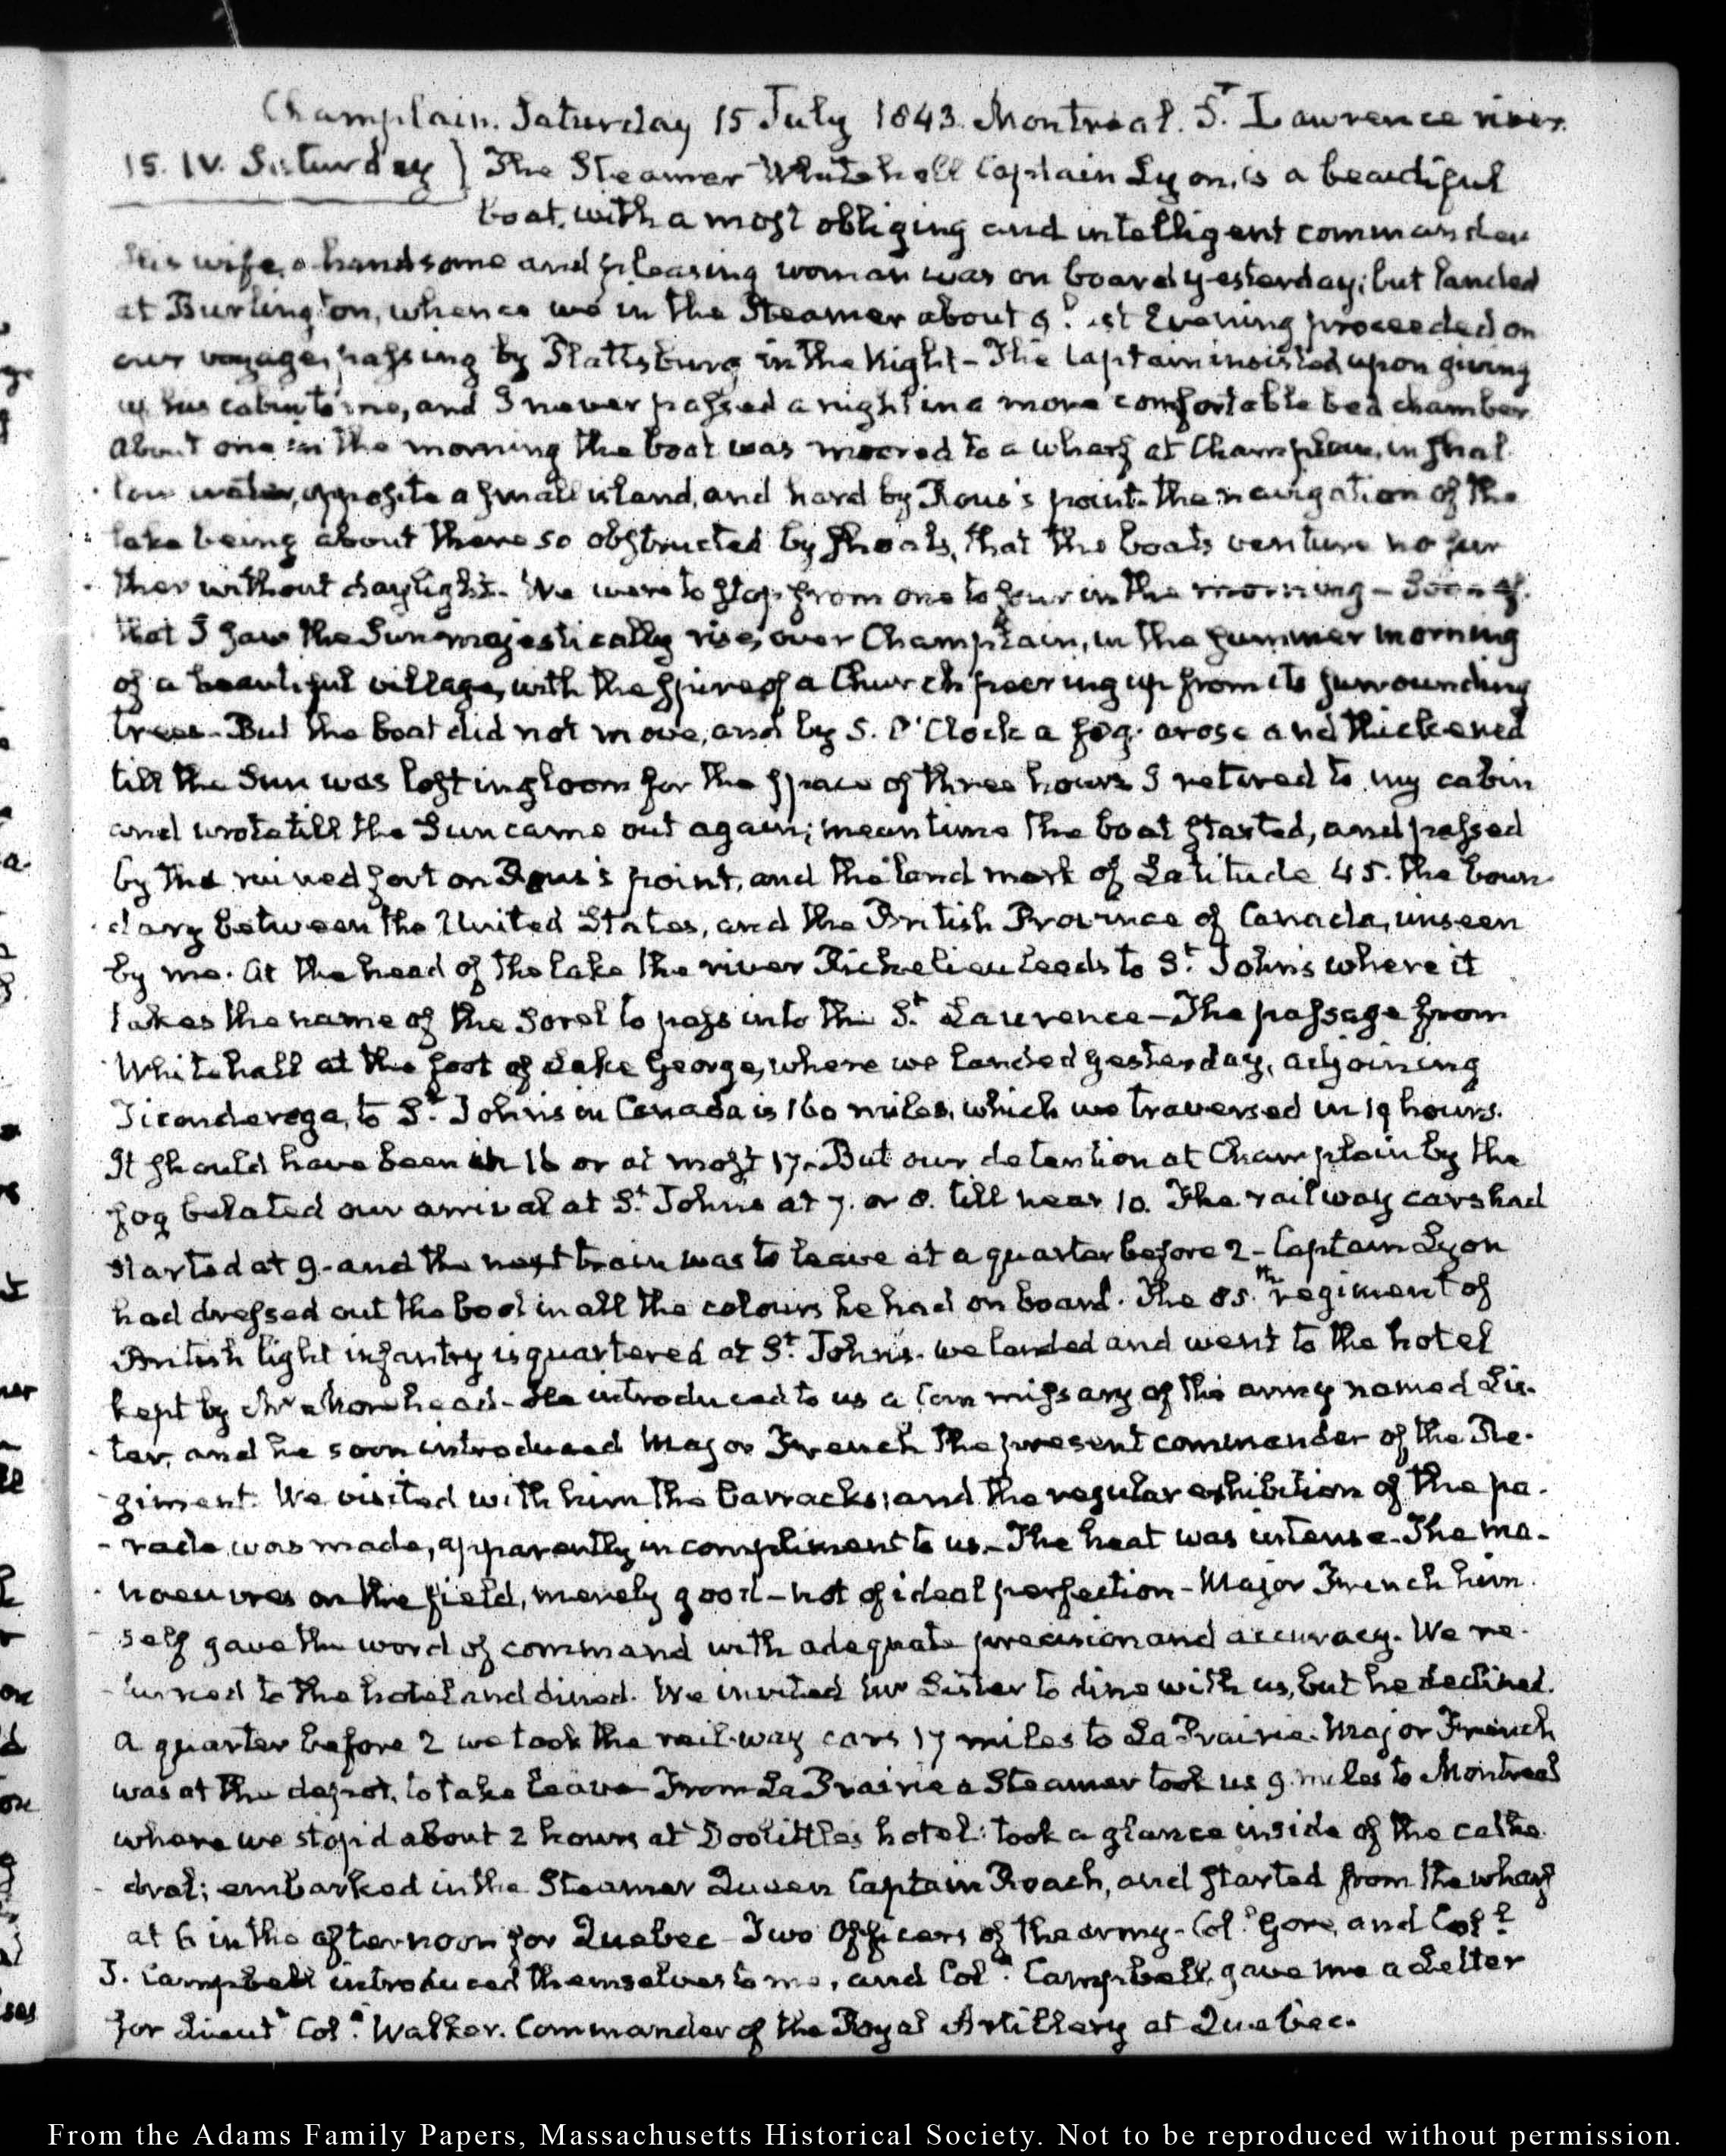 Champlain. Saturday 15 July 1843. Montreal. St. Lawrence river.
15. IV. Saturday} The Steamer Whitehall Captain Lyon, is a beautiful
boat, with a most obliging and intelligent commander
His wife, a handsome and pleasing woman was on board yesterday; but landed
at Burlington, whence we in the Steamer about last Evening proceeded on
our voyage, passing by Plattsburg in the Night - The Captain insisted upon giving
up his cabin to me, and I never passed a night in a more comfortable bed chamber
About one in the morning the boat was moored to a wharf at Champlain, in shal-
low water, opposite a small island, and hard by Rous's point. the navigation of the
lake being about there so obstructed by shoals, that the boats venture no fur
ther without daylight. We were to stop from one to four in the morning - Soon af.
that I saw the Sun majestically rise, over Champlain, in the summer morning
of a beautiful village, with the spire of a Church peering up from its surrounding
trees - But the boat did not move, and by 5. O'Clock a fog arose and thickened
till the Sun was lost in gloom for the space of three hours I retired to my cabin
and wrote till the Sun came out again; meantime the boat started, and passed
by the ruined fort on Rous's point, and the land mark of Latitude 45. the boun-
dary between the United States, and the British Province of Canada, unseen
by me. At the head of the lake the river Richelieu leads to St. Johns where it
takes the name of the Sorel to pass into the St. Laurence - The passage from
Whitehall at the foot of Lake George, where we landed yesterday, adjoining
Ticonderoga, to St. Johns in Canada is 160 miles, which we traversed in 19 hours.
It should have been in 16 or at most 17 - But our detention at Champlain by the
fog belated our arrival at St. Johns at 7. or 8. till near 10. The rail way cars had
started at 9 - and the next train was to leave at a quarter before 2 - Captain Lyon
had dressed out the boat in all the colours he had on board. The 85.th regiment of
British light infantry is quartered at St. Johns. we landed and went to the hotel
kept by Mr Morehead - He introduced to us a Commissary of the army named Lis-
ter, and he soon introduced Major French the present commander of the Re-
giment. We visited with him the barracks; and the regular exhibition of the pa-
rade was made, apparently in compliment to us. - The heat was intense - The ma-
noeuvres on the field, merely good - not of ideal perfection - Major French him
self gave the word of command with adequate precision and accuracy. We re-
turned to the hotel and dined. We invited Mr Lister to dine with us, but he declined.
A quarter before 2 we took the rail-way cars 17 miles to La Prairie. Major French
was at the depot, to take leave - From La Prairie a Steamer took us 9 miles to Montreal
where we stop'd about 2 hours at Doolittles hotel: took a glance inside of the cathe-
dral; embarked in the Steamer Queen Captain Roach, and started from the wharf
at 6 in the afternoon for Quebec - Two Officers of the army - Col.l Gore, and Col.l
J. Campbell introduced themselves to me, and Col.l Campbell, gave me a Letter
for Lieut.t Col.l Walker. Commander of the Royal Artillery at Quebec.
From the Adams Family Papers, Massachusetts Historical Society. Not to be reproduced without permission.